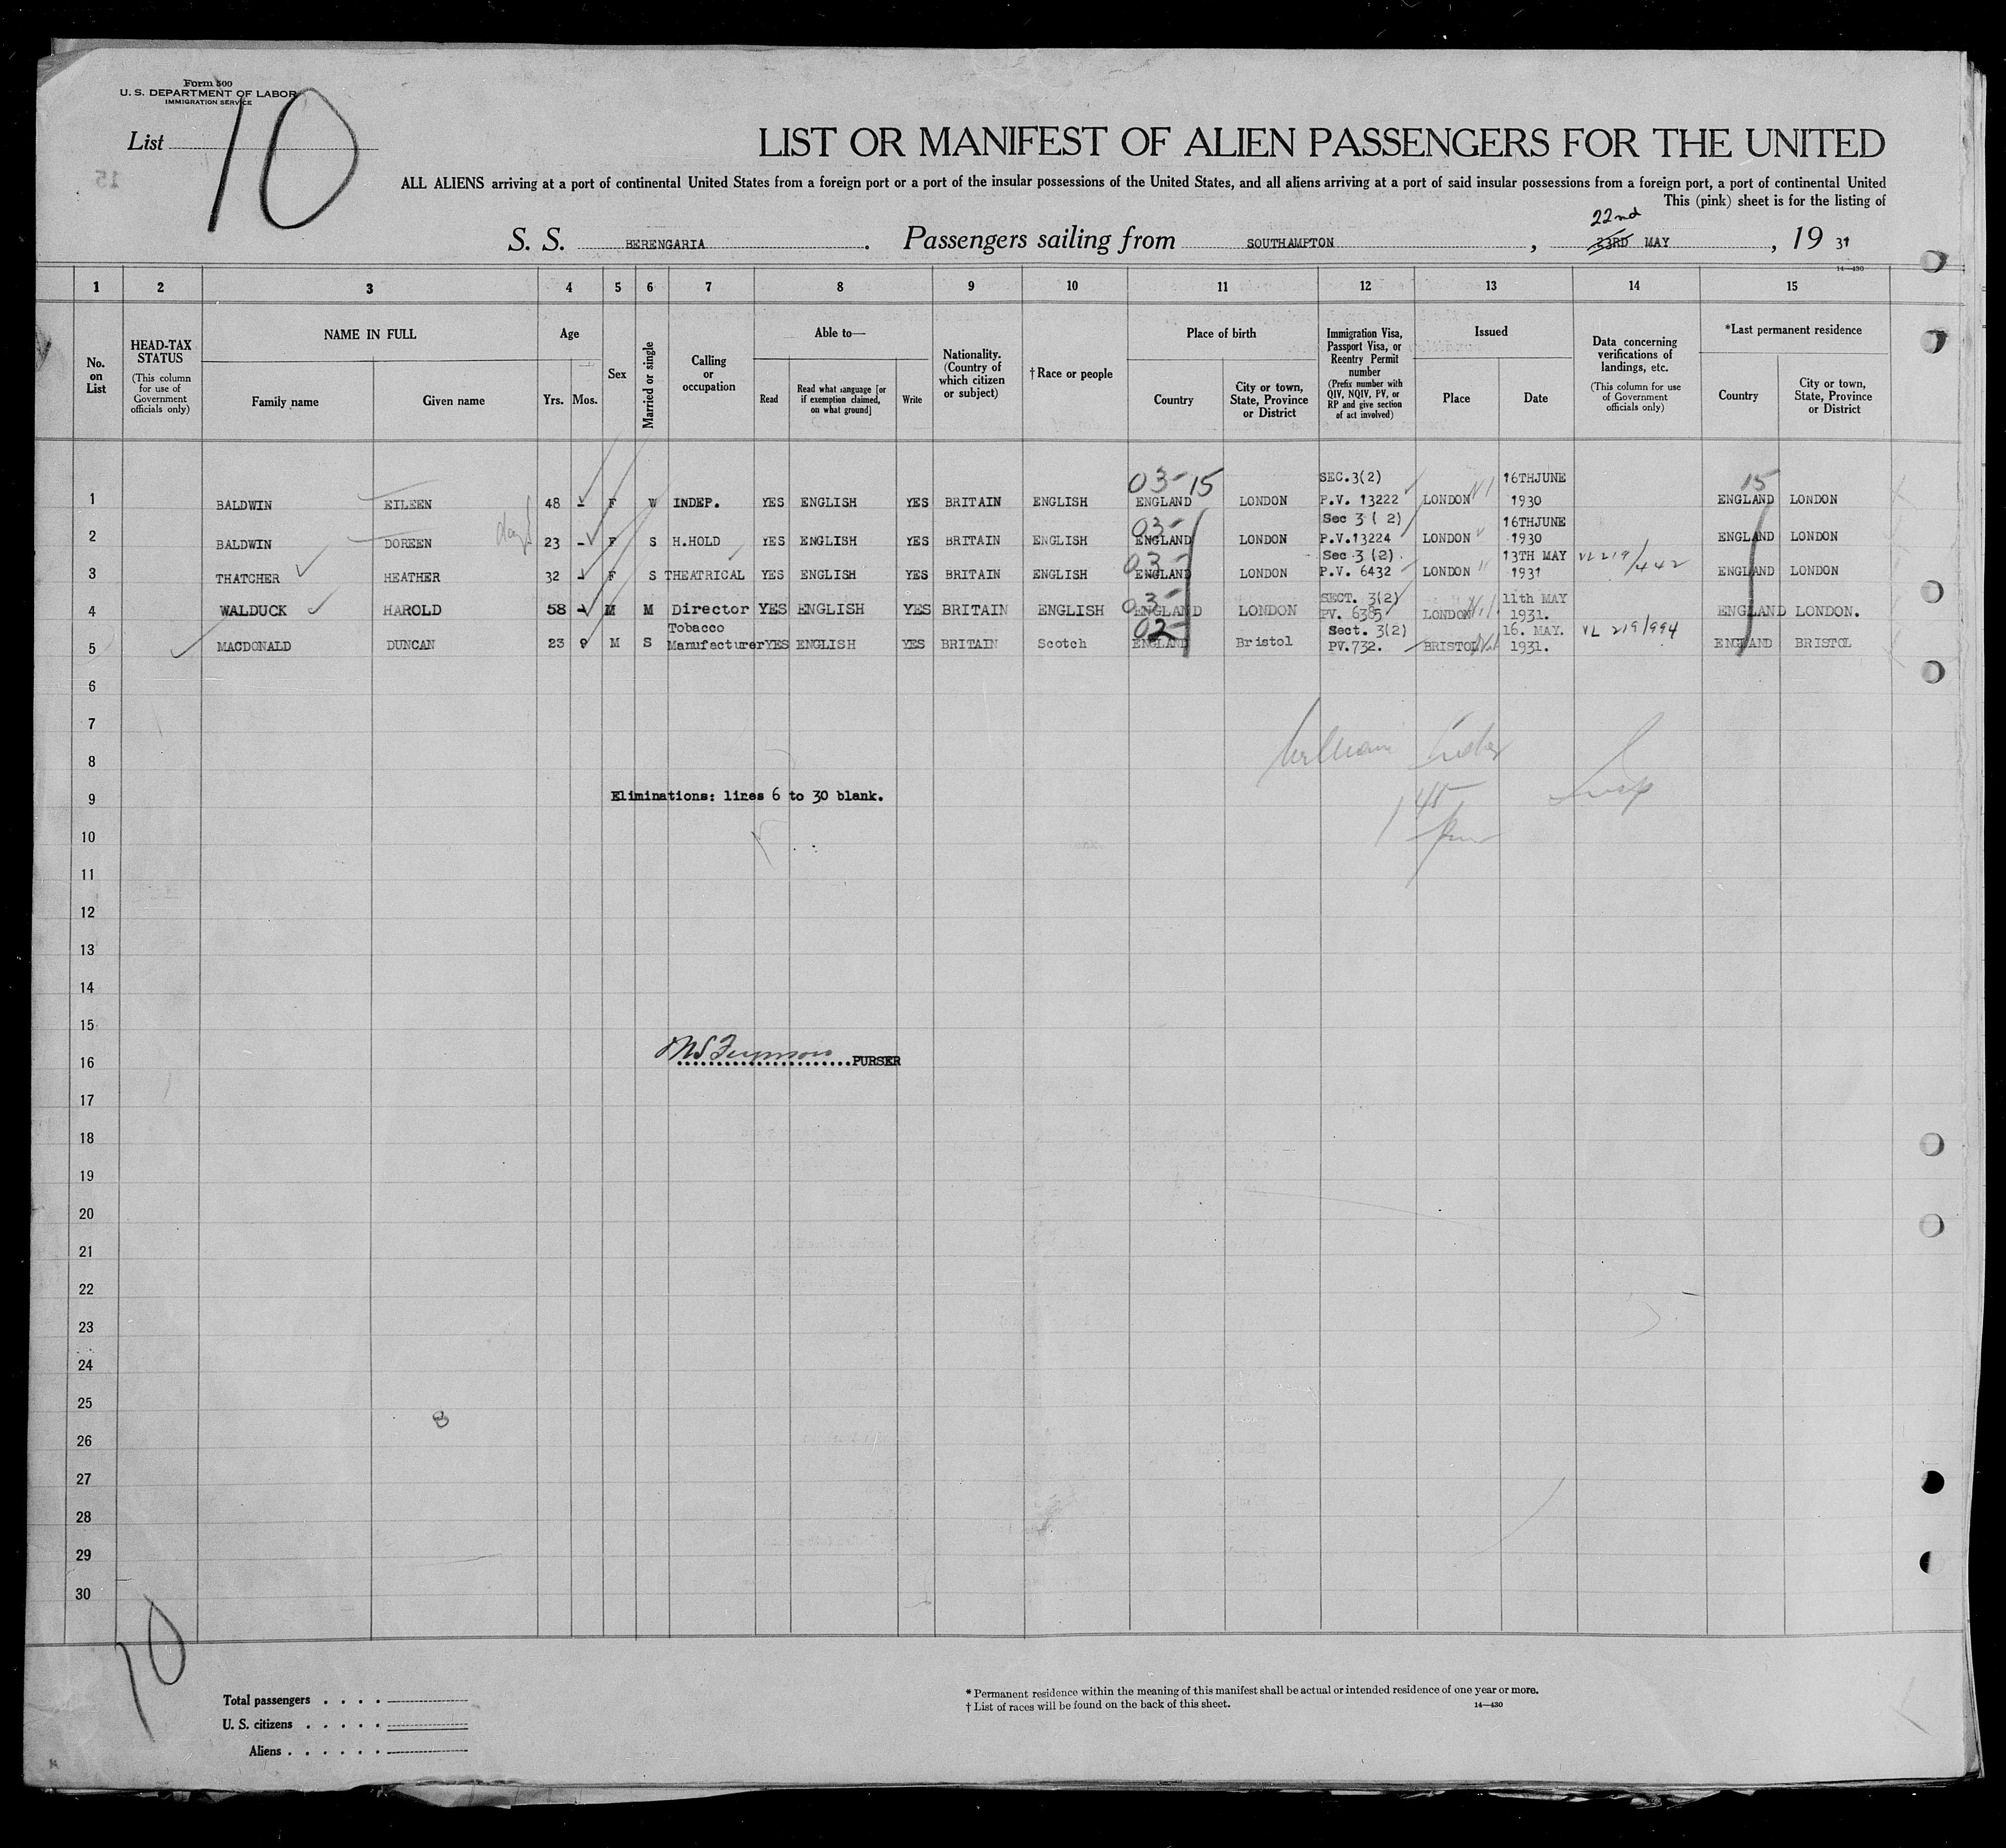 Form 500
U. S. DEPARTMENT OF LABOR
IMMIGRATION SERVICE
List 10
15
LIST OR MANIFEST OF ALIEN PASSENGERS FOR THE UNITED
ALL ALIENS arriving at a port of continental United States from a foreign port or a port of the insular possessions of the United States, and all aliens arriving at a port of said insular possessions from a foreign port, a port of continental United
This (pink) sheet is for the listing of
22nd
S. S. BERENGARIA. Passengers sailing from SOUTHAMPTON, 23RD MAY, 19 31
14—430
1 2 3 4 5 6 7 8 9 10 11 12 13 14 15
No. on List
HEAD-TAX STATUS (This column for use of Government officials only)
NAME IN FULL
Family name Given name
Age
Yrs. Mos.
Sex
Married or single
Calling or occupation
Able to—
Read Read what language [or if exemption claimed, on what ground] Write
Nationality. (Country of which citizen or subject)
†Race or people
Place of birth
Country City or town, State, Province or District
Immigration Visa, Passport Visa, or Reentry Permit number (Prefix number with QIV, NQIV, PV, or RP and give section of act involved)
Issued
Place Date
Data concerning verifications of landings, etc. (This column for use of Government officials only)
*Last permanent residence
Country City or town, State, Province or District
03-15 SEC.3(2) 16THJUNE 15
1 BALDWIN EILEEN 48 - F W INDEP. YES ENGLISH YES BRITAIN ENGLISH ENGLAND LONDON P.V. 13222 LONDON 1930 ENGLAND LONDON
03- Sec 3 ( 2) 16THJUNE
2 BALDWIN DOREEN 23 - F S H.HOLD YES ENGLISH YES BRITAIN ENGLISH ENGLAND LONDON P.V.13224 LONDON 1930 ENGLAND LONDON
03- Sec 3 (2) 13TH MAY VL 219/442
3 THATCHER HEATHER 32 - F S THEATRICAL YES ENGLISH YES BRITAIN ENGLISH ENGLAND LONDON P.V. 6432 LONDON 1931 ENGLAND LONDON
03- SECT. 3(2) 11th MAY
4 WALDUCK HAROLD 58 - M M Director YES ENGLISH YES BRITAIN ENGLISH ENGLAND LONDON PV. 6385 LONDON 1931. ENGLAND LONDON.
Tobacco 02- Sect. 3(2) 16. MAY. VL 219/994
5 MACDONALD DUNCAN 23 9 M S Manufacturer YES ENGLISH YES BRITAIN Scotch ENGLAND Bristol PV.732. BRISTOL 1931. ENGLAND BRISTOL
6
7
8 William
9 Eliminations: lines 6 to 30 blank. 145
10
11
12
13
14
15
16 PURSER
17
18
19
20
21
22
23
24
25
8
26
27
28
29
30
10
Total passengers . . . .
U. S. citizens . . . . .
Aliens . . . . . .
* Permanent residence within the meaning of this manifest shall be actual or intended residence of one year or more.
† List of races will be found on the back of this sheet. 14—430